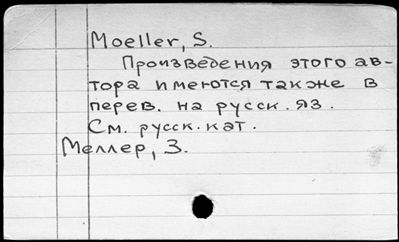 Moeller, S.
Произведения этого ав-
тора имеются также в
перев. на русск. яз.
См. русск. кат.
Меллер, З.